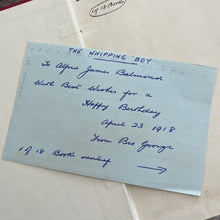 1 of 18 Books
THE WHIPPING BOY
To Alfred James Belmond
With Best Wishes for a
Happy Birthday
April 23 1918
From Bro George
1 of 18 Books